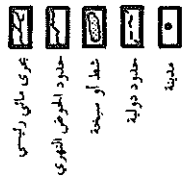 مجرى مائي رئيسي
حدود الحوض النهري
شط أو سبخة
حدود دولية
مدينة